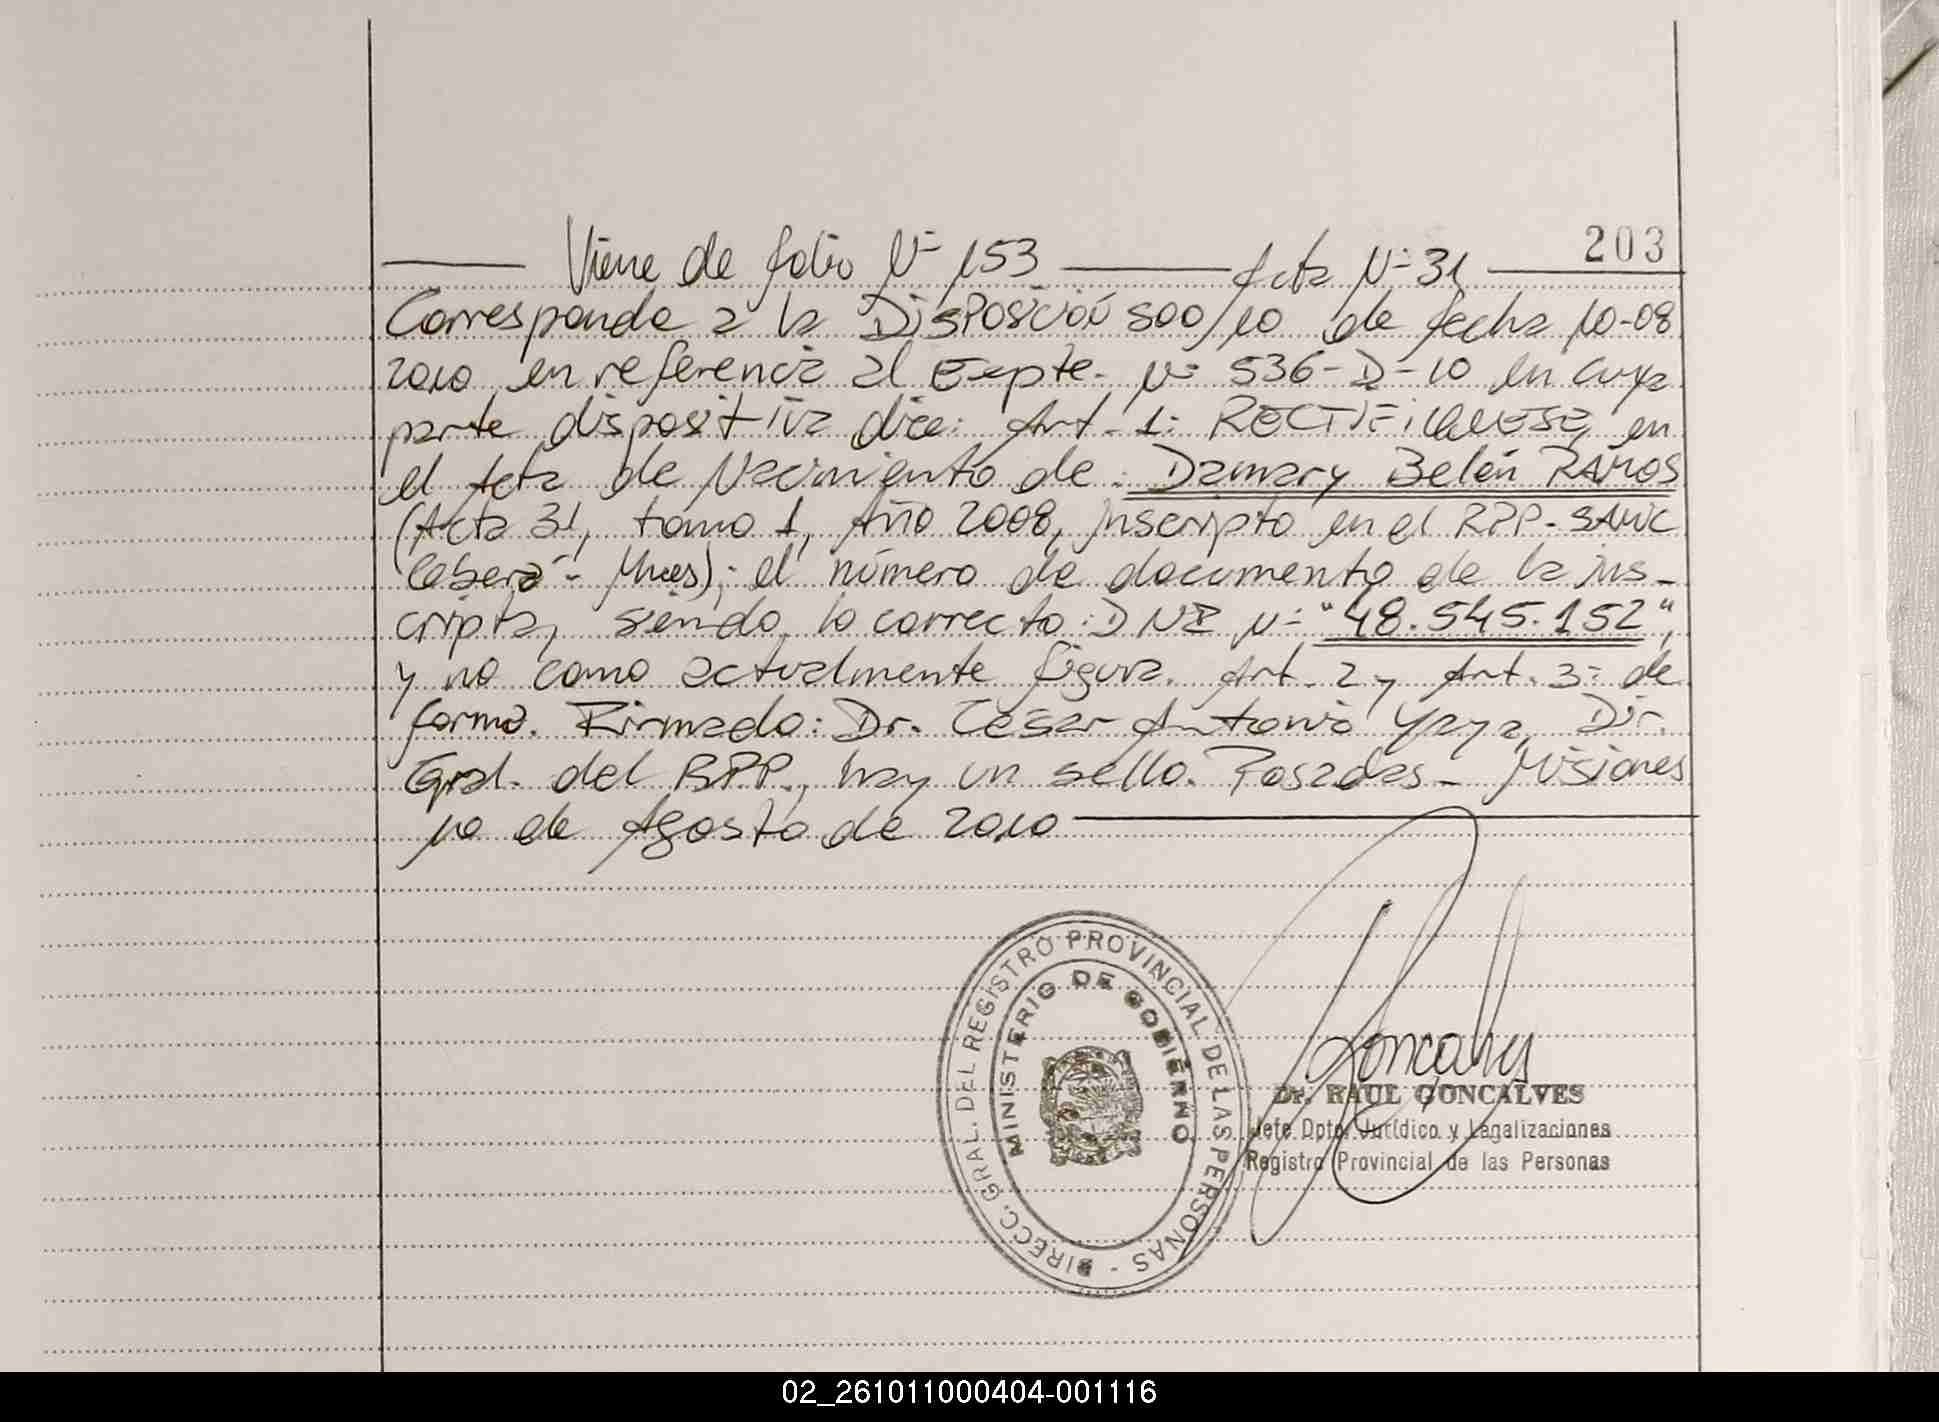 203
Viene de folio Nº 153 Acta Nº 31
Corresponde a la DISPOSICIÓN 500/10 de fecha 10-08
2010 en referencia al Expte. Nº 536-D-10 en cuya
parte dispositiva dice: Art. 1: RECTIFIQUESE, en
el Acta de Nacimiento de: Damary Belén RAMOS
(Acta 31, tomo 1, Año 2008, inscripto en el RPP-SAMIC
Mnes); el número de documento de la ins-
cripta, siendo lo correcto: DNI Nº "48.545.152",
y no como actualmente figura. Art. 2 y Art. 3: de
forma. Firmado: Dr. César Antonio Yaya, Dir.
Gral. del RPP., hay un sello. Posadas - Misiones
10 de Agosto de 2010
DIRECC. GRAL. DEL REGISTRO PROVINCIAL DE LAS PERSONAS -
MINISTERIO DE GOBIERNO
Goncalves
Dr. RAUL GONCALVES
Jefe Dpto. Jurídico y Legalizaciones
Registro Provincial de las Personas
02_261011000404-001116